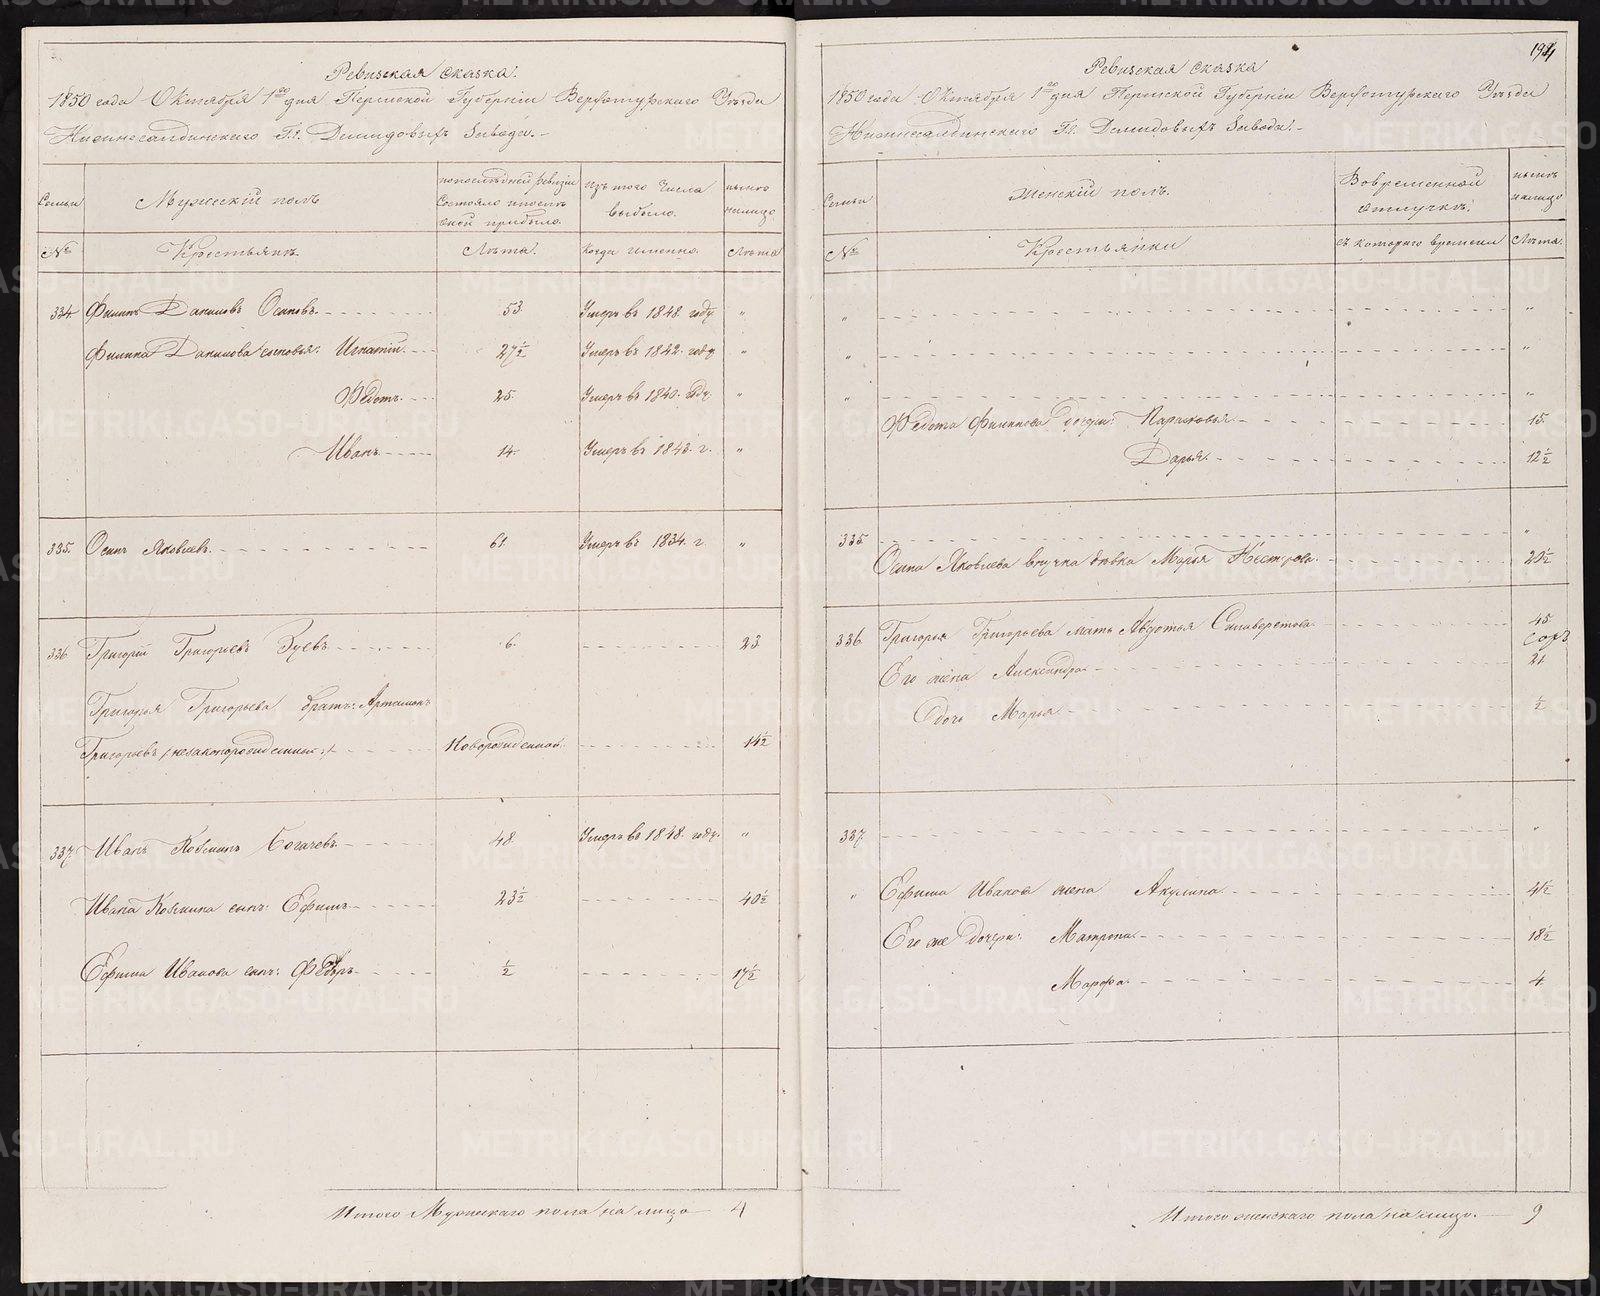 Ревизская сказка.
1850 года Октября 1го дня Пермской Губернiи Верхотурскаго Уѣзда
Нижнесалдинскаго Г.г. Демидовыхъ Завода.
Семьи
Мужескiй полъ
по последней ревизiи
состояло и после
оной прибыло
изъ того числа
выбыло.
ныне
на лицо
№
Крестьянъ.
Лѣта.
Когда именно.
Лѣта
334. Филипъ Даниловъ Осиповъ. 53. Умеръ въ 1848 году. "
Филипа Данилова сыновья: Игнатiй. 27½ Умеръ въ 1842 году. "
Федотъ. 25. Умеръ въ 1840. году. "
Иванъ. 14. Умеръ въ 1843. г. "
335. Осипъ Яковлевъ. 61. Умеръ въ 1834. г. "
336 Григорiй Григорьевъ Зуевъ 6. 23.
Григорья Григорьева братъ: Артамонъ
Григорьевъ /незаконорожденный/ Новорожденной. 14½
337. Иванъ Козминъ Богачевъ. 48. Умеръ въ 1848. году. "
Ивана Козмина сынъ: Ефимъ 23½ 40½
Ефима Иванова сынъ: Федоръ ½ 17½
Итого Мужескаго пола на лицо 4
194
Ревизская сказка
1850 года Октября 1го дня Пермской Губернiи Верхотурскаго Уѣзда
Нижнесалдинскаго Г.г. Демидовыхъ Завода.
Семьи
Женскiй полъ.
Во временной
отлучкѣ.
ныне
на лицо
№
Крестьянки
съ котораго времени
Лѣта.
" "
" "
" "
Федота Филипова дочери: Парасковья 15.
Дарья. 12½
335. "
Осипа Яковлева внучка девка Марья Нестерова. 20½
336 Григорья Григорьева мать Авдотья Силиверстова 45.
Его жена Александра 21
дочь Марья ½
337. "
" Ефима Иванова жена Акулина 41½
Его же дочери: Матрена. 18½
Марфа. 4.
Итого женскаго пола на лицо. 9
METRIKI.GASO-URAL.RU